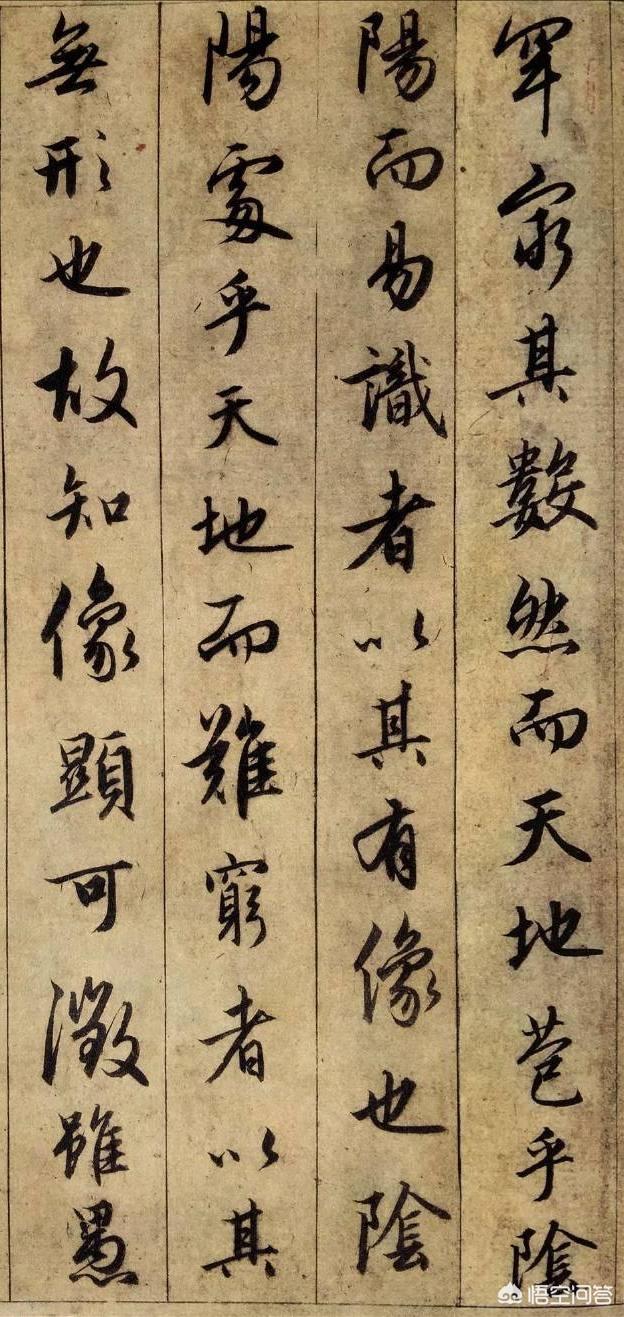 罕窮其數然而天地苞乎陰
陽而易識者以其有像也陰
陽處乎天地而難窮者以其
無形也故知像顯可徵雖愚
悟空问答